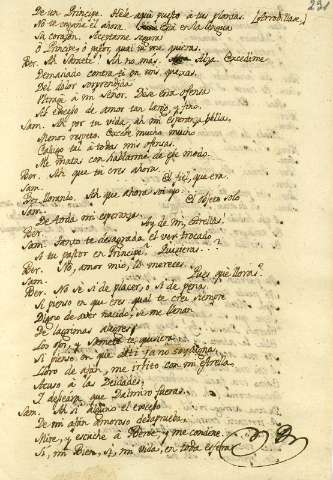 231
De un Principe. Hele aqui puesto à tus plantas. (Arrodillase.)
No te engañe el ahora. Está en la lengua
Su corazon. Aceptame segura
O Principe, ó pastor, qual tu me quieras.
Ber. Ah Sbnete! Ah no mas. Alza. Excedime
Demasiado contra ti en mis quexas
Del dolor sorprendida
Paraçi à mi Señor. Dexe esta ofensa
Al exceso de amor tan largo, y fino.
Sam. Ah por tu vida, ah mi esperanza bella,
Menos respeto. Excede mucho mucho
Castigo tal à todas mis ofensas.
Me matas con hablarme de ese modo.
Ber. Ah que tu eres ahora
Sam. El fiel, que era.
Ber. llorando. Ah que ahora soi yo
Sam. El objeto solo
De toda mi esperanza
Ber. Soy de mi, estrellas!
Sam. Tanto te desagrada el ver trocado
Si tu pastor en Principe? Quisieras...?
Ber. No, amor mio, lo mereces.
Sam. Pues que lloras?
Ber. No se si de placer, ó si de pena.
Si pienso en que eres qual te crei siempre
Digno de aver nacido, se me llenan
De lacrimas alegres
Los ojos, y
Si pienso en que
Llena de afan, me irrito con mi estrella
Acuso à las Deidades,
Y deseara que Dalmiro fueras.
Sam. Ah si alguno el exceso
De mi ardor amoroso desaprueba,
Mire, y escuche à Berene, y me condene.
Si, mi Bien, si, mi vida, en toda esfera